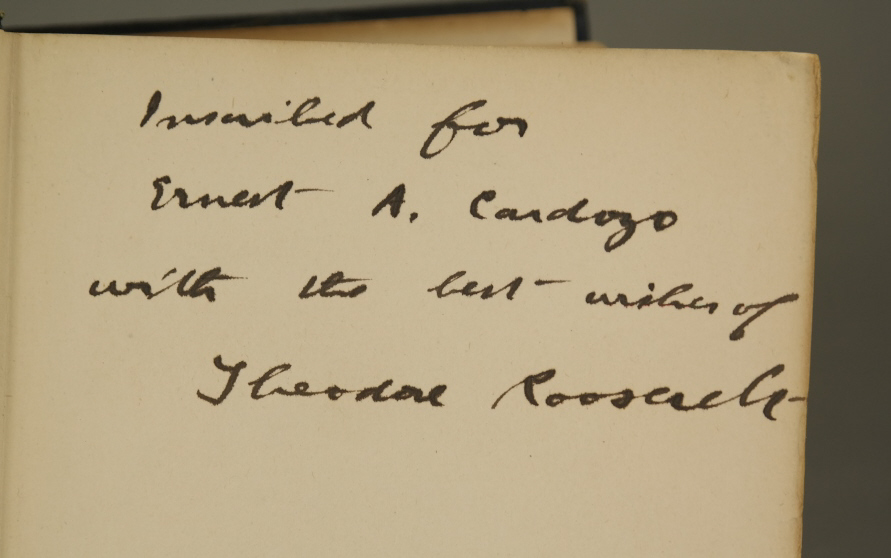 Inscribed for
Ernest A. Cardozo
with the best wishes of
Theodore Roosevelt